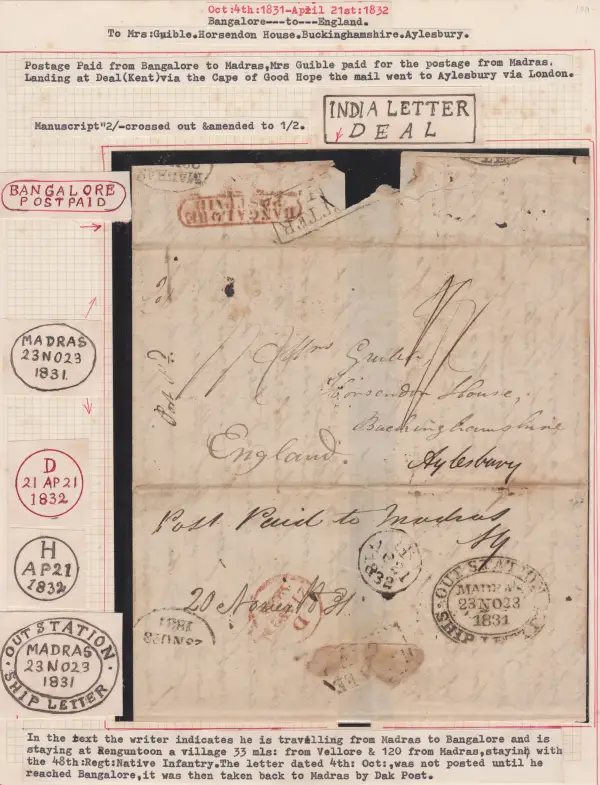 Oct:4th:1831-April 21st:1832
Bangalore---to---England.
To Mrs:Guible.Horsendon House.Buckinghamshire.Aylesbury.
Postage Paid from Bangalore to Madras,Mrs Guible paid for the postage from Madras.
Landing at Deal(Kent)via the Cape of Good Hope the mail went to Aylesbury via London.
INDIA LETTER
DEAL
Manuscript"2/-crossed out &amended to 1/2.
BANGALORE
POSTPAID
MADRAS
23NO23
1831.
D
21 AP 21
1832
H
AP21
1832
OUT STATION
MADRAS
23NO23
1831
SHIP LETTER
BANGALORE
POSTPAID
Mrs
House,
Buckinghamshire
England.
Aylesbury
Post Paid to Madras
20 31.
D
OUT STATION
MADRAS
23NO23
1831
SHIP LETTER
1831
In the text the writer indicates he is travelling from Madras to Bangalore and is
staying at Renguntoon a village 33 mls: from Vellore & 120 from Madras,staying with
the 48th:Regt:Native Infantry.The letter dated 4th: Oct:,was not posted until he
reached Bangalore,it was then taken back to Madras by Dak Post.